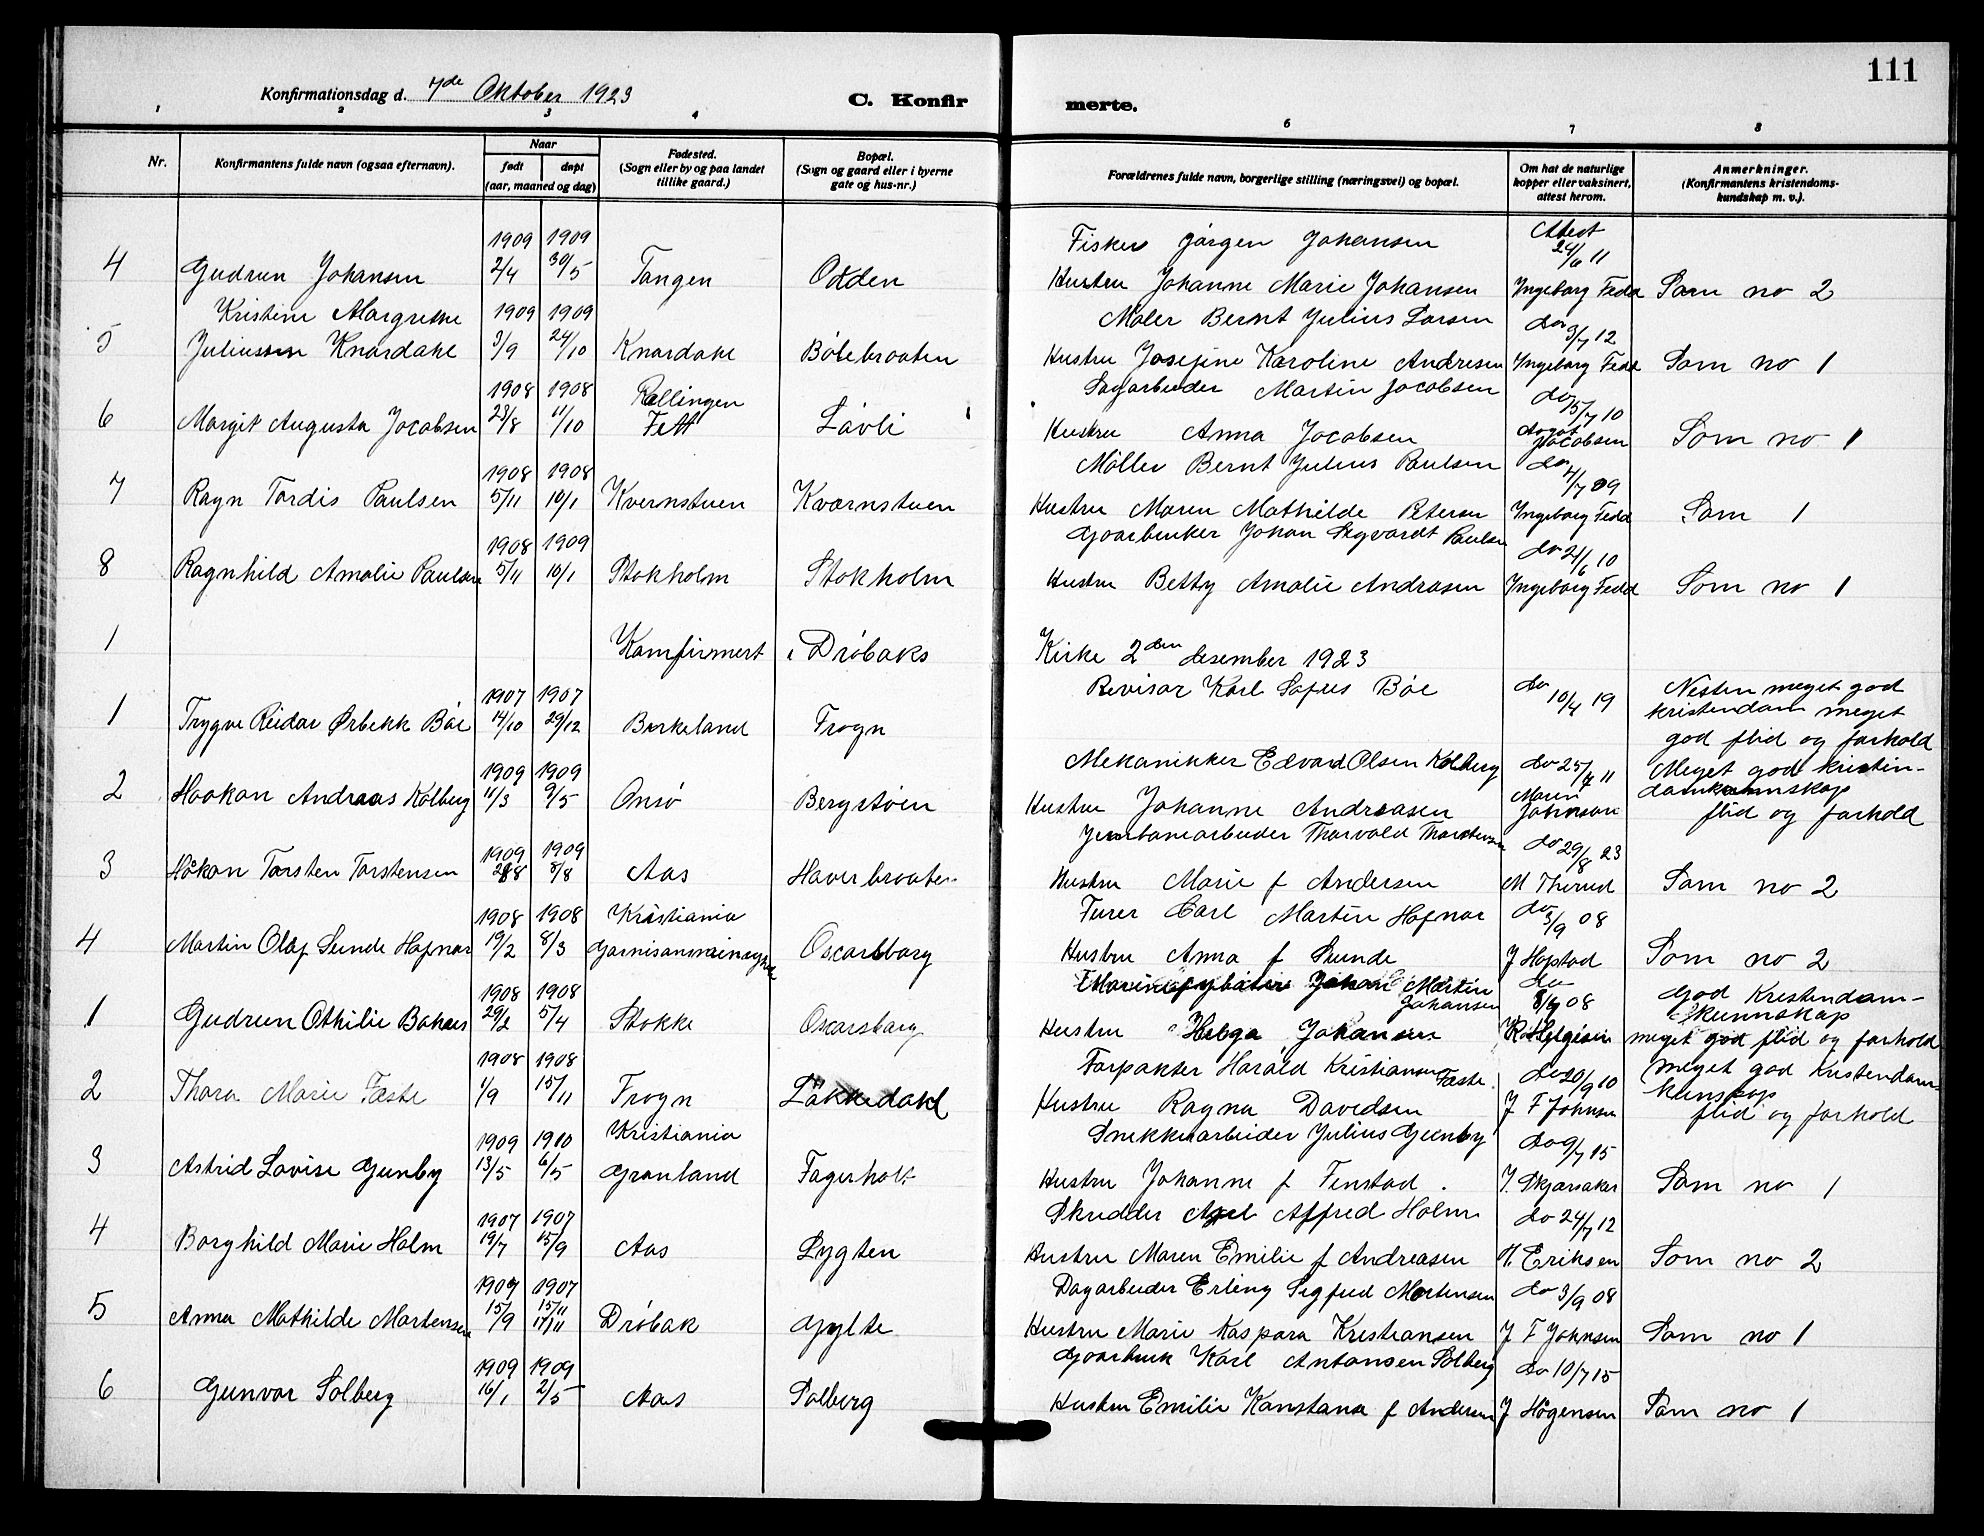 111
Konfirmationsdag d. 7de Oktober 1923
C. Konfir merte.
1 2 3 4 6 7 8
Nr.
Konfirmantens fulde navn (ogsaa efternavn).
Naar
født døpt
(aar, maaned og dag)
Fødested.
(Sogn eller by og paa landet
tillike gaard.)
Bopæl.
(Sogn og gaard eller i byerne
gate og hus-nr.)
Forældrenes fulde navn, borgerlige stilling (næringsvei) og bopæl.
Om hat de naturlige
kopper eller vaksinert,
attest herom.
Anmerkninger.
(Konfirmantens kristendoms-
kundskap m. v.).
1909 1909 Fisker Jørgen Johansen Attest 24/6 11
4 Gudrun Johansen 2/4 30/5 Tangen Odden Hustru Johanne Marie Johansen Ingeborg Fedd Som no 2
Kristine Margrethe 1909 1909 Maler Bernt Julius Larsen do 9/7 12
5 Juliussen Knardahl 3/9 24/10 Knardahl Bölebraaten Hustru Josefine Karoline Andresen Ingeborg Fedd Som no 1
1908 1908 Rellingen Sagarbeider Martin Jacobsen do 15/7 10
6 Margit Augusta Jacobsen 23/8 11/10 Fett Lövli Hustru Anna Jocobsen Jacobsen Som no 1
1908 1908 Möller Bernt Julius Paulsen do 4/7 09
7 Rayn Tordis Paulsen 5/11 10/1 Kvernstuen Kvarnstuen Hustru Maren Mathilde Petersen Ingeborg Fedd Som 1
1908 1909 Gaarbruker Johan Sigvardt Paulsen do 21/6 10
8 Ragnhild Amalie Paulsen 5/11 10/1 Stokholm Stokholm Hustru Betty Amalie Andrasen Ingeborg Fedd Som no 1
1 Komfirmert i Dröbaks Kirke 2den desember 1923
1907 1907 Revisor Karl Sofus Böe do 10/4 19 Nesten meget god
1 Trygve Reidar Ørbekk Böe 14/10 29/12 Birkeland Frogn kristendom meget
god flid og forhold
1909 1909 Mekanikker Edvard Olsen Kolberg do 25/4 11 Meget god kristen-
2 Haakon Andraas Kolberg 11/3 9/5 Onsö Bergstöen Hustru Johanne Andreasen Maren Johnson domkunnskap
flid og forhold
1909 1909 Jernbanearbeider Thorvald Thorstensen do 29/8 23
3 Håkon Torsten Torstensen 8/8 Aas Haverbraaten Hustru Marie f Andersen M Therud Som no 2
1908 1908 Kristiania Furer Carl Martin Hafnor do 3/9 08
4 Martin Olaf Sunde Hafnor 19/2 8/3 Oscarsborg Hustru Anna f Sunde J Hopstad Som no 2
1908 1908 Johan Martin Johansen do 08 God Kristendom-
1 Gudrun Othilie 29/2 5/4 Stokke Oscarsborg Hustru Helga Johansen kunnskap
meget god flid og forhold
1908 1908 Forpakter Harald Kristiansen Fæste do 20/9 10 Meget god Kristendom-
2 Thora Marie Fæste 1/9 15/11 Frogn Løkkedahl Hustru Ragna Davidsen J F Johnsen kunskap
flid og forhold
1909 1910 Kristiania Snekkerarbeider Julius Gunby do 9/7 15
3 Astrid Lovise Gunby 13/5 6/5 Grönland Fagerholt Hustru Johanne f Finstad. J. Skjørsaker Som no 1
1907 1907 Skredder Axel Alfred Holm do 24/7 12
4 Borghild Marie Holm 19/7 15/9 Aas Lygten Hustru Maren Emilie f Andreasen H. Eriksen Som no 2
1907 1907 Dagarbeider Erling Sigfred Mortensen do 3/9 08
5 Anna Mathilde Mortensen 15/9 15/11 17/11 Dröbak Gylte Hustru Marie Kaspara Kristiansen J F Johnsen Som no 1
1909 1909 Gaarbruk Karl Antonsen Solberg do 10/7 15
6 Gunvor Solberg 16/1 2/5 Aas Solberg Hustru Emilie Konstansa f Andersen J Högensen Som no 1